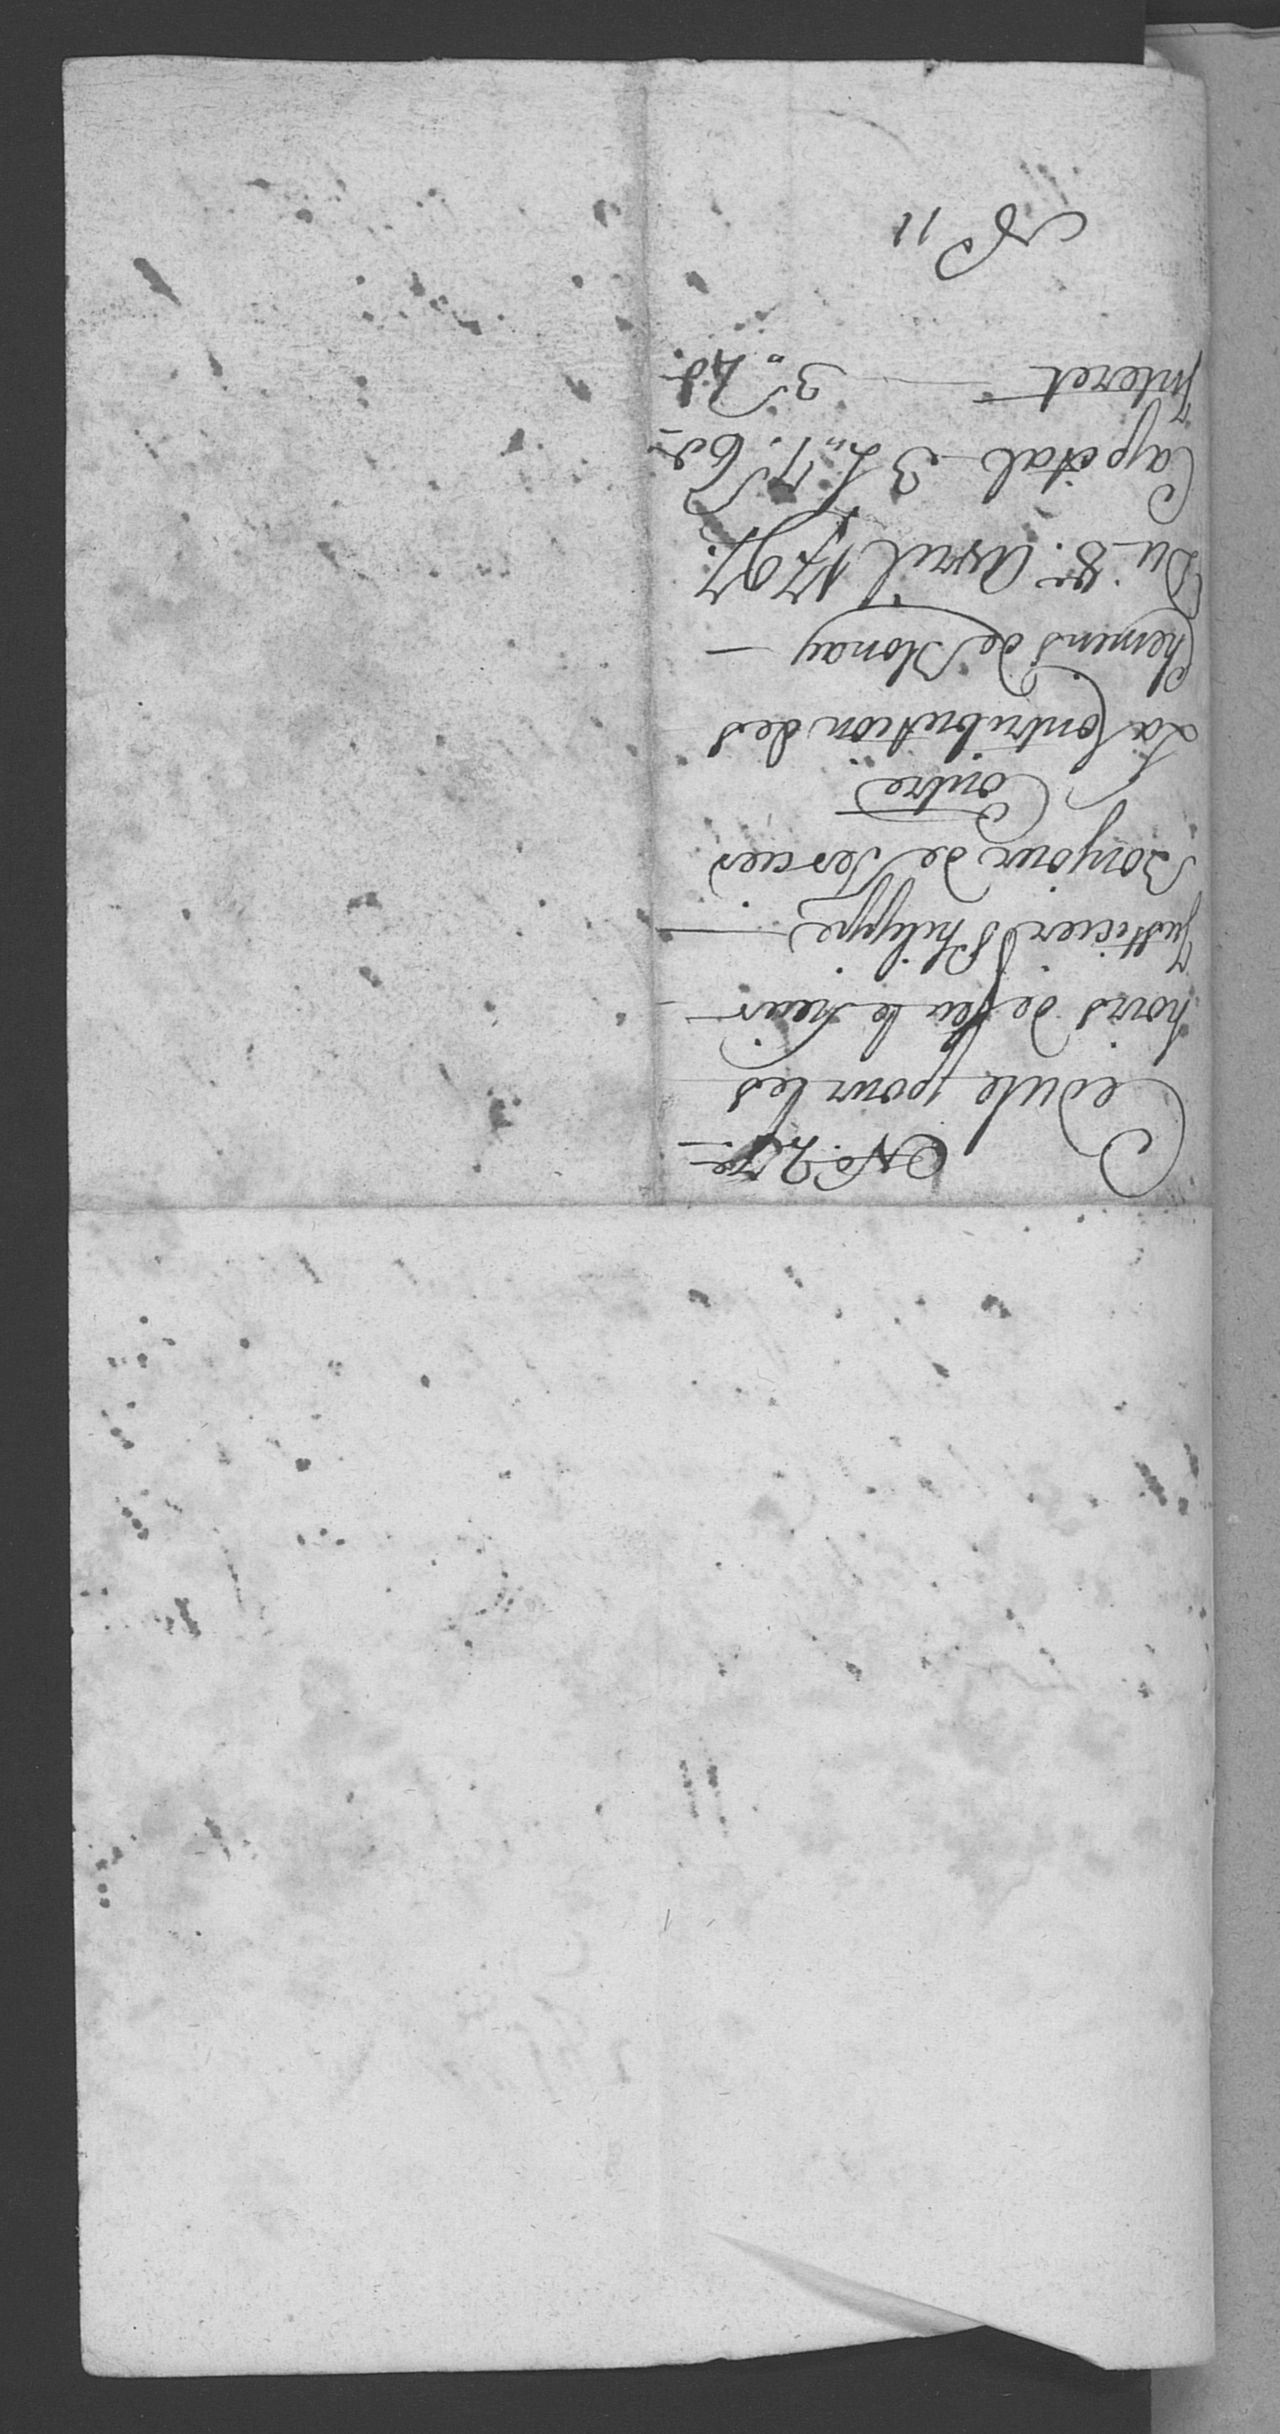 No. 27e
Cedule pour les
hoirs de feu le Sieur
Justicier Philippe
Bonjour de Tercier
Contre
La Contribution des
Chemins de Blonay
Du 8e. Avril 1797.
Capital 3 L„ 7. 6 d
Interet 3„ 4 d.
No 11